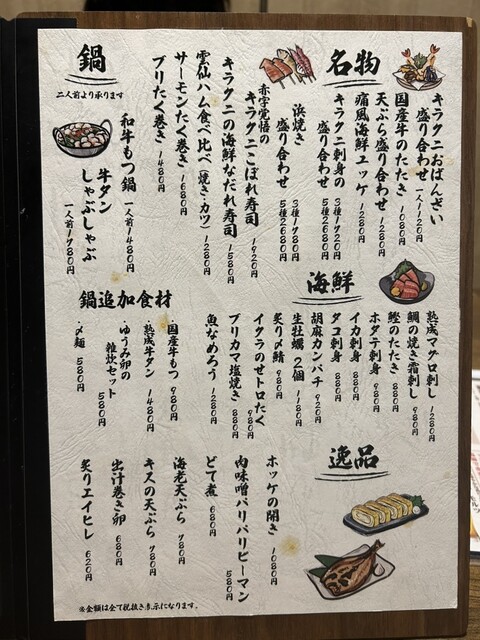 名物
キラクニおばんざい
盛り合わせ 一人前1120円
国産牛のたたき 1080円
天ぷら盛り合わせ 1280円
痛風海鮮ユッケ 1280円
キラクニ刺身の
盛り合わせ 3種1720円
5種2680円
浜焼き
盛り合わせ 3種1980円
5種2680円
赤字覚悟の
キラクニこぼれ寿司 1920円
キラクニの海鮮なだれ寿司 1580円
雲仙ハム食べ比べ(焼き・カツ) 1280円
サーモンたく巻き 1680円
ブリたく巻き 1480円
鍋
二人前より承ります
和牛もつ鍋 一人前1480円
牛タン
しゃぶしゃぶ 一人前1780円
海鮮
熟成マグロ刺し 1280円
鯛の焼き霜刺し 980円
鰹のたたき 880円
ホタテ刺身 980円
イカ刺身 880円
タコ刺身 880円
胡麻カンパチ 920円
生牡蠣 2個 1180円
炙り〆鯖 980円
イクラのせトロたく 980円
ブリカマ塩焼き 880円
魚なめろう 1280円
鍋追加食材
・国産牛もつ 980円
・熟成牛タン 1480円
・ゆうみ卵の
雑炊セット 580円
・〆麺 580円
逸品
ホッケの開き 1080円
肉味噌バリバリピーマン 580円
どて煮 680円
海老天ぷら 780円
キスの天ぷら 780円
出汁巻き卵 680円
炙りエイヒレ 620円
※金額は全て税抜き表示になります。